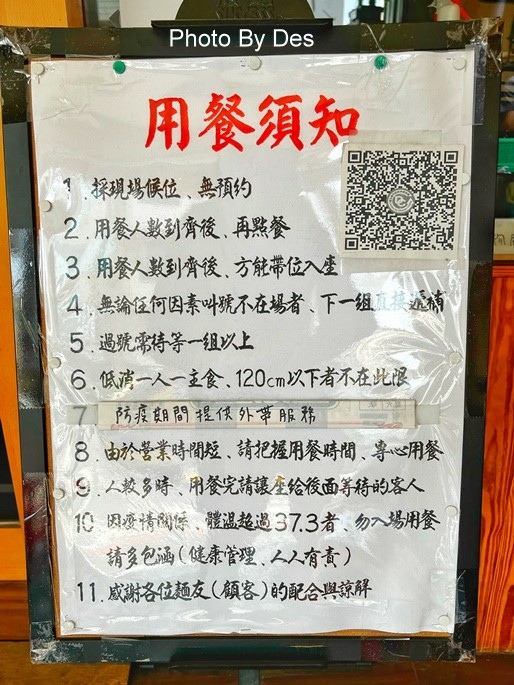 Photo By Des
用餐須知
1. 採現場候位、無預約
2. 用餐人數到齊後、再點餐
3. 用餐人數到齊後、方能帶位入座
4. 無論任何因素叫號不在場者、下一組直接遞補
5. 過號需待等一組以上
6. 低消一人一主食、120cm以下者不在此限
7 防疫期間提供外帶服務
8. 由於營業時間短、請把握用餐時間、專心用餐
9. 人較多時、用餐完請讓座給後面等待的客人
10. 因疫情關係、體溫超過37.3者、勿入場用餐
請多包涵(健康管理、人人有責)
11. 感謝各位麵友(顧客)的配合與諒解